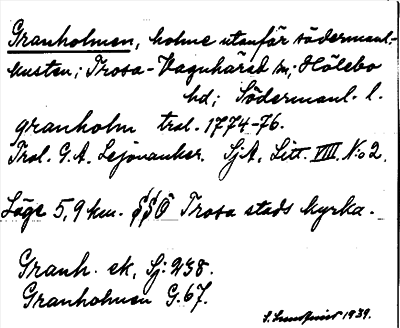 Granholmen, holme utanför södermanl.-
kusten; Trosa-Vagnhärad sn; Hölebo
hd; Södermanl. l.
granholm tral. 1774-76.
Tral. G.A. Lejonanker. SjA. Litt. VIII. N:o 2.
Läge 5,9 km. SSÖ Trosa stads kyrka.
Granh. ek, Sj: 238.
Granholmen G.67.
S. 1939.